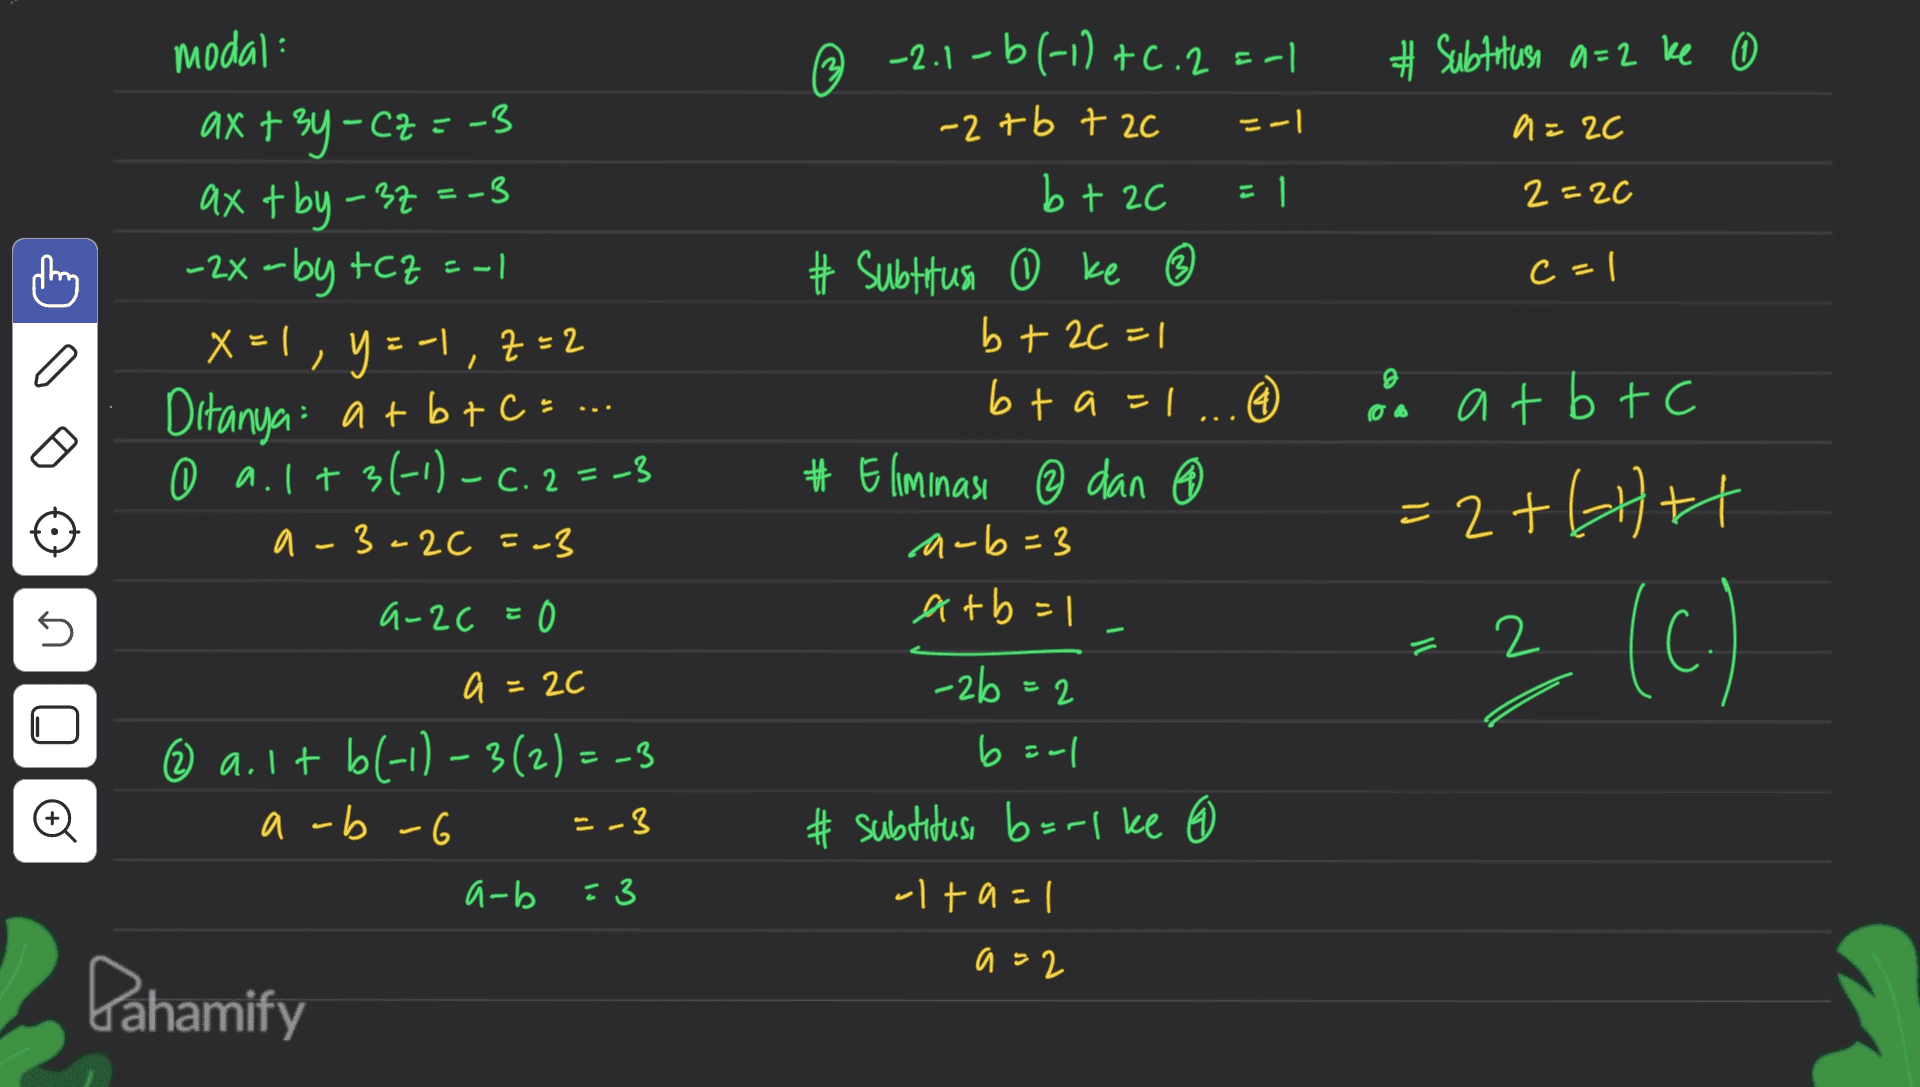 modal:
ax + 3y - cz = -3
ax + by - 3z = -3
-2x - by + cz = -1
x = 1, y = -1, z = 2
Ditanya: a + b + c = ...
① a.1 + 3(-1) - c.2 = -3
a - 3 - 2c = -3
a - 2c = 0
a = 2c
② a.1 + b(-1) - 3(2) = -3
a - b - 6 = -3
a - b = 3
③ -2.1 - b(-1) + c.2 = -1
-2 + b + 2c = -1
b + 2c = 1
# Subtitusi ① ke ③
b + 2c = 1
b + a = 1 ... ④
# Eliminasi ② dan ④
a - b = 3
a + b = 1 -
-2b = 2
b = -1
# subtitusi b = -1 ke ④
-1 + a = 1
a = 2
# Subtitusi a = 2 ke ①
a = 2c
2 = 2c
c = 1
∴ a + b + c
= 2 + (-1) + 1
= 2 (C.)
Pahamify